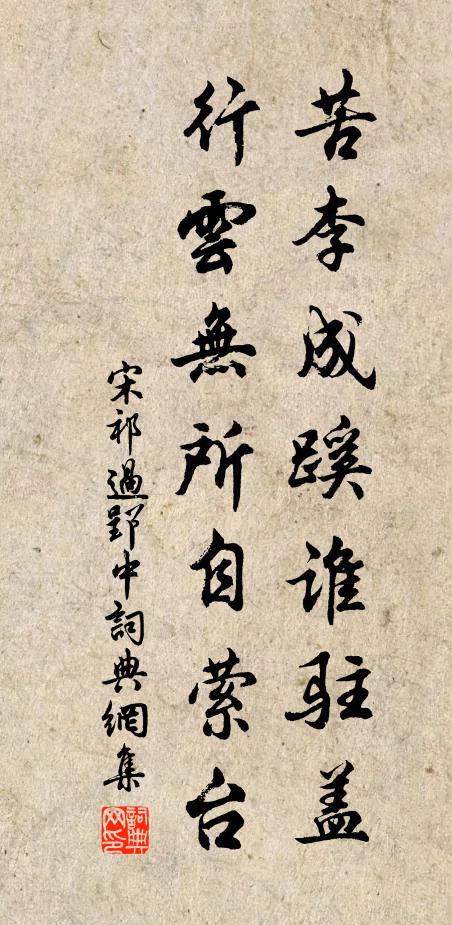 苦李成蹊谁駐盖
行雲無所自萦台
宋祁過郢中詞典網集
詞典网印